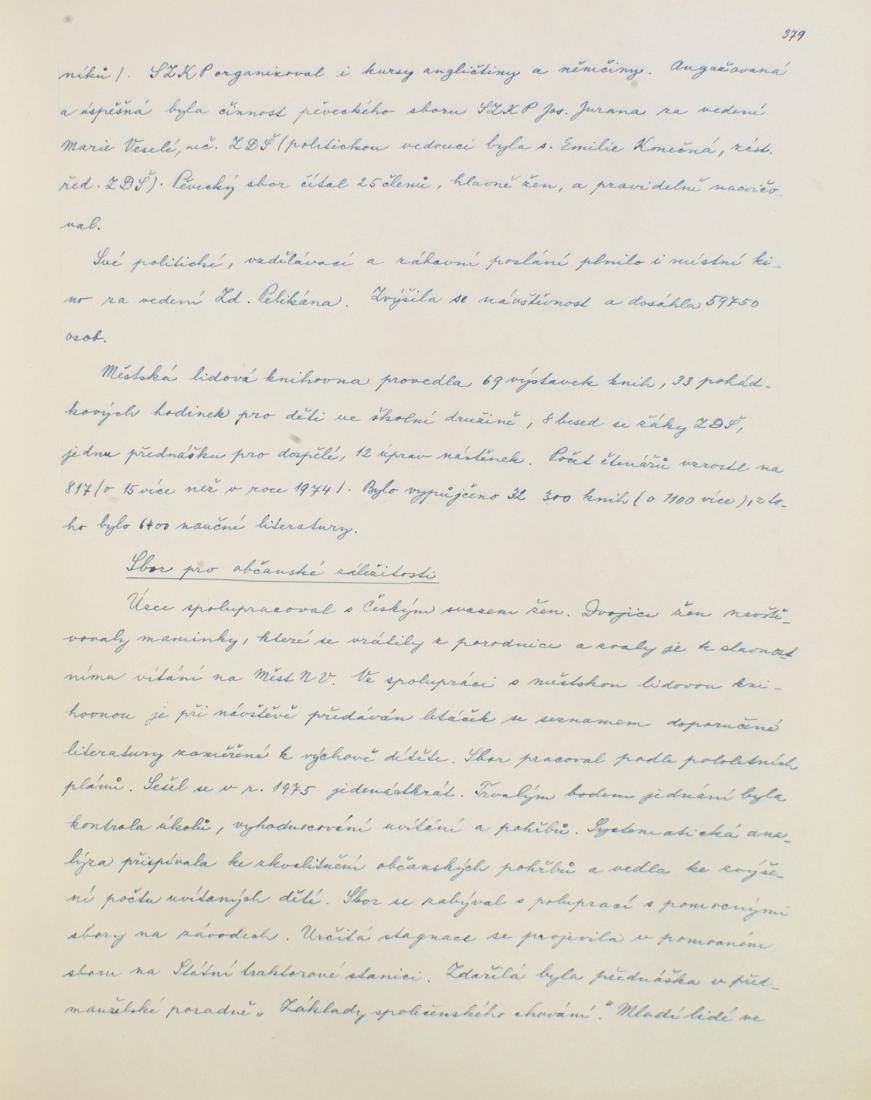 379
níků/. SZK P organizoval i kursy angličtiny a němčiny. Angažovaná
a úspěšná byla činnost pěveckého sboru SZK P Jos. Jurana za vedení
Marie Veselé, uč. ZDŠ (politickou vedoucí byla s. Emilie Konečná, zást.
řed. ZDŠ). Pěvecký sbor čítal 25 členů, hlavně žen, a pravidelně nacvičo-
val.
Své politické, vzdělávací a zábavní poslání plnilo i místní ki-
no za vedení Zd. Pelikána. Zvýšila se návštěvnost a dosáhla 59750
osob.
Městská lidová knihovna provedla 69 výstavek knih, 33 pohád-
kových hodinek pro děti ve školní družině, 8 besed se žáky ZDŠ,
jednu přednášku pro dospělé, 12 úprav nástěnek. Počet čtenářů vzrostl na
817/o 15 více než v roce 1974/. Bylo vypůjčeno 32 300 knih (o 1100 více), z to-
ho bylo 6400 naučné literatury.
Sbor pro občanské záležitosti
Úzce spolupracoval s Českým svazem žen. Dvojice žen navště-
vovaly maminky, které se vrátily z porodnice a zvaly je k slavnost
nímu vítání na Měst N V. Ve spolupráci s městskou lidovou kni-
hovnou je při návštěvě předáván letáček se seznamem doporučené
literatury zaměřené k výchově dítěte. Sbor pracoval podle pololetních
plánů. Sešel se v r. 1975 jedenáctkrát. Trvalým bodem jednání byla
kontrola úkolů, vyhodnocování uvítání a pohřbů. Systematická ana-
lýza přispívala ke zkvalitnění občanských pohřbů a vedla ke zvýše-
ní počtu uvítaných dětí. Sbor se zabýval spoluprací s pomocnými
sbory na závodech. Určitá stagnace se projevila v pomocném
sboru na Státní traktorové stanici. Zdařilá byla přednáška v před-
manželské poradně „Základy společenského chování." Mladí lidé ve